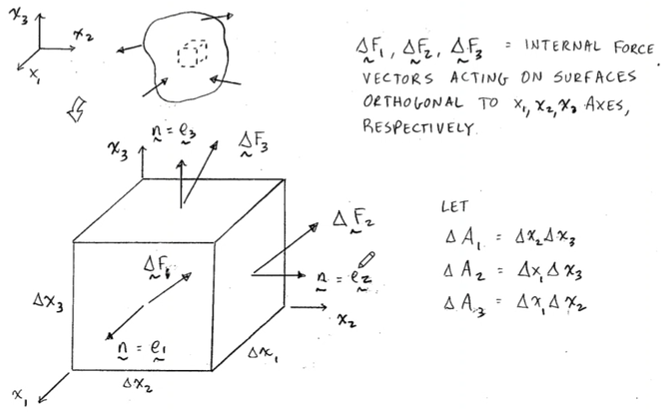 x₃
x₂
x₁
ΔF₁, ΔF₂, ΔF₃ = INTERNAL FORCE
VECTORS ACTING ON SURFACES
ORTHOGONAL TO x₁, x₂, x₃ AXES,
RESPECTIVELY.
x₃
n = e₃
ΔF₃
ΔF₂
ΔF₁
n = e₂
x₂
Δx₃
n = e₁
Δx₁
Δx₂
x₁
LET
ΔA₁ = Δx₂Δx₃
ΔA₂ = Δx₁Δx₃
ΔA₃ = Δx₁Δx₂